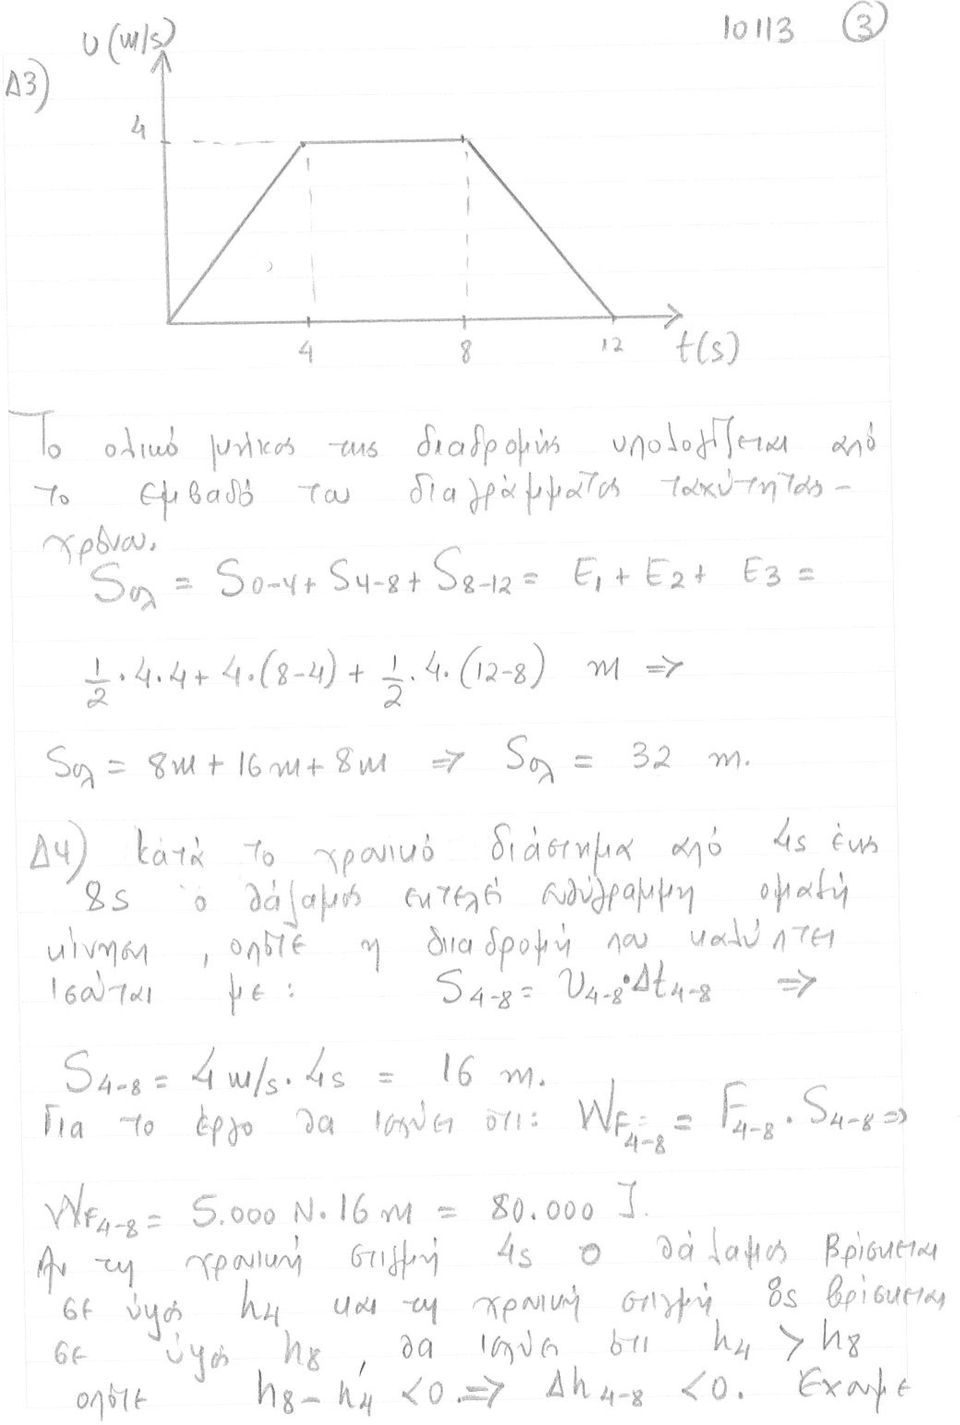 10113 3
υ(m/s)
Δ3)
4
4 8 12 t(s)
Το ολικό μήκος της διαδρομής υπολογίζεται από
το εμβαδό του διαγράμματος ταχύτητας-
χρόνου.
Sολ = S0-4 + S4-8 + S8-12 = E1 + E2 + E3 =
1/2 · 4 · 4 + 4 · (8-4) + 1/2 · 4 · (12-8) m ⇒
Sολ = 8m + 16m + 8m ⇒ Sολ = 32 m.
Δ4) Κατά το χρονικό διάστημα από 4s έως
8s ο θάλαμος εκτελεί ευθύγραμμη ομαλή
κίνηση, οπότε η διαδρομή που καλύπτει
ισούται με: S4-8 = υ4-8 · Δt4-8 ⇒
S4-8 = 4 m/s · 4s = 16 m.
Για το έργο θα ισχύει ότι: WF4-8 = F4-8 · S4-8 ⇒
WF4-8 = 5.000 N · 16 m = 80.000 J.
Αν τη χρονική στιγμή 4s ο θάλαμος βρίσκεται
σε ύψος h4 και τη χρονική στιγμή 8s βρίσκεται
σε ύψος h8, θα ισχύει ότι h4 > h8
οπότε h8 - h4 < 0. ⇒ Δh4-8 < 0. Έχουμε